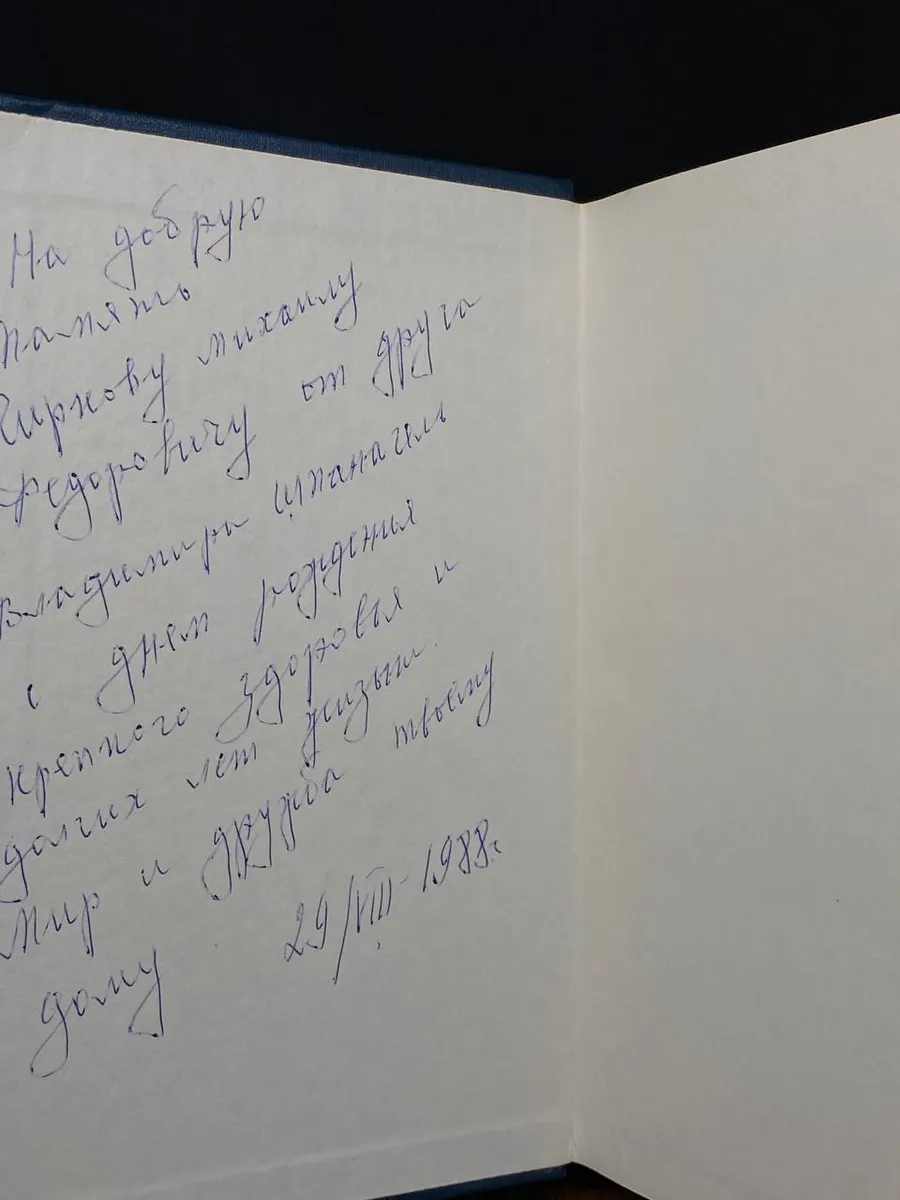 На добрую
память
Чиркову Михаилу
Федоровичу от друга
Владимира Шпанагель
с днем рождения
крепкого здоровья и
долгих лет жизни.
Мир и дружба твоему
дому 29/VIII-1988г